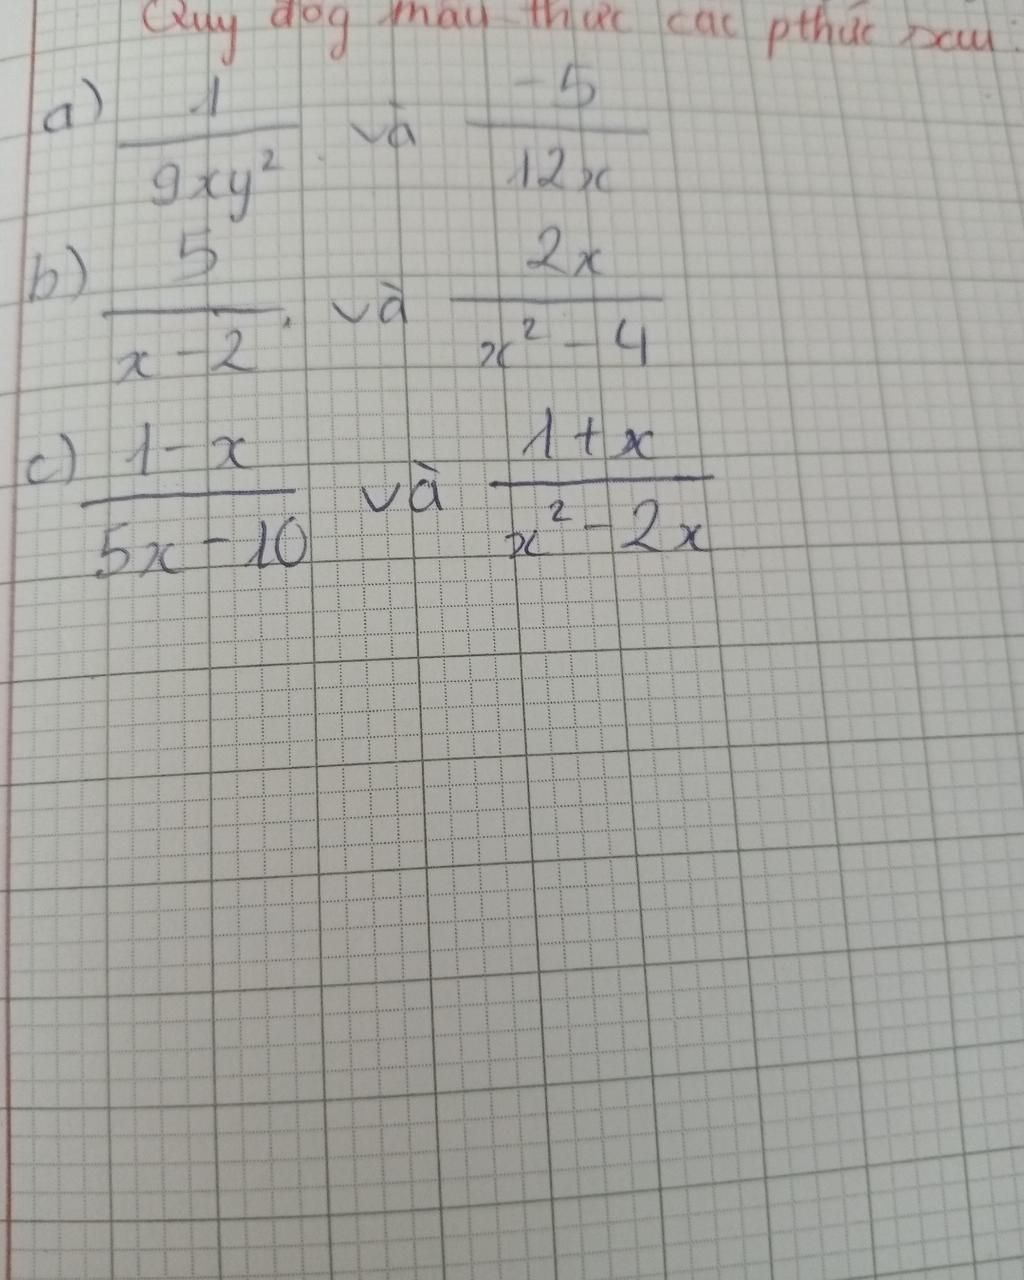 Quy đog mẫu thức các pthức sau:
a) 1/9xy² và -5/12x
b) 5/x-2, và 2x/x²-4
c) 1-x/5x-10 và 1+x/x²-2x